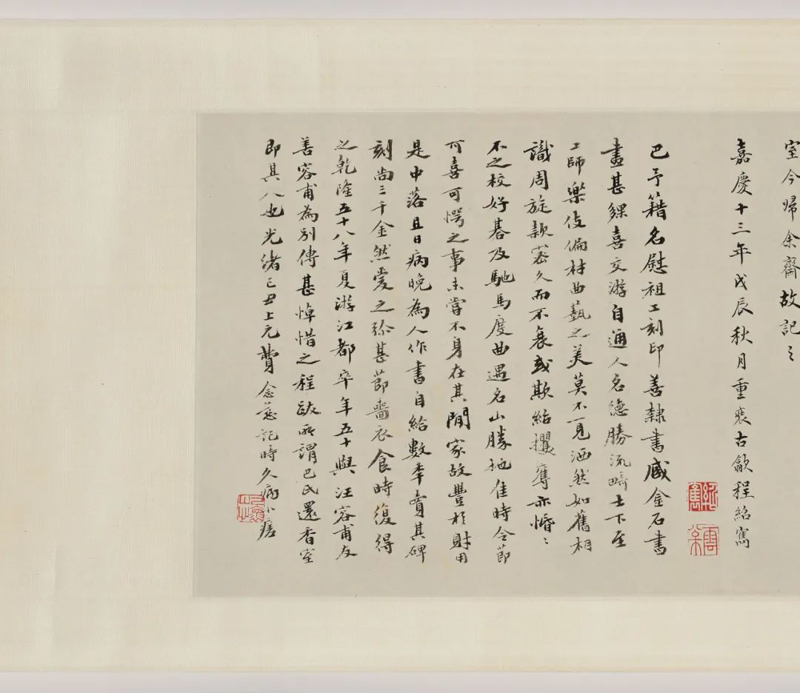 室今歸余齋故記之
嘉慶十三年戊辰秋月重裝古歙程紹寫
巴予籍名慰祖工刻印善隸書藏金石書
畫甚夥喜交游自通人名德勝流畸士下至
工師樂伎偏材曲藝之美莫不一見洒然如舊相
識周旋款密久而不衰或欺紿攘奪亦惛惛
不之校好碁及馳馬度曲遇名山勝地佳時令節
可喜可愕之事未嘗不身在其間家故豐於財用
是中落且日病晚為人作書自給數年賣其碑
刻尚三千金然愛之彌甚節嗇衣食時復得
之乾隆五十八年夏游江都卒年五十與汪容甫友
善容甫為別傳甚悼惜之程跋所謂巴氏還香室
即其人也光緒己丑上元費念慈記時久病小瘥